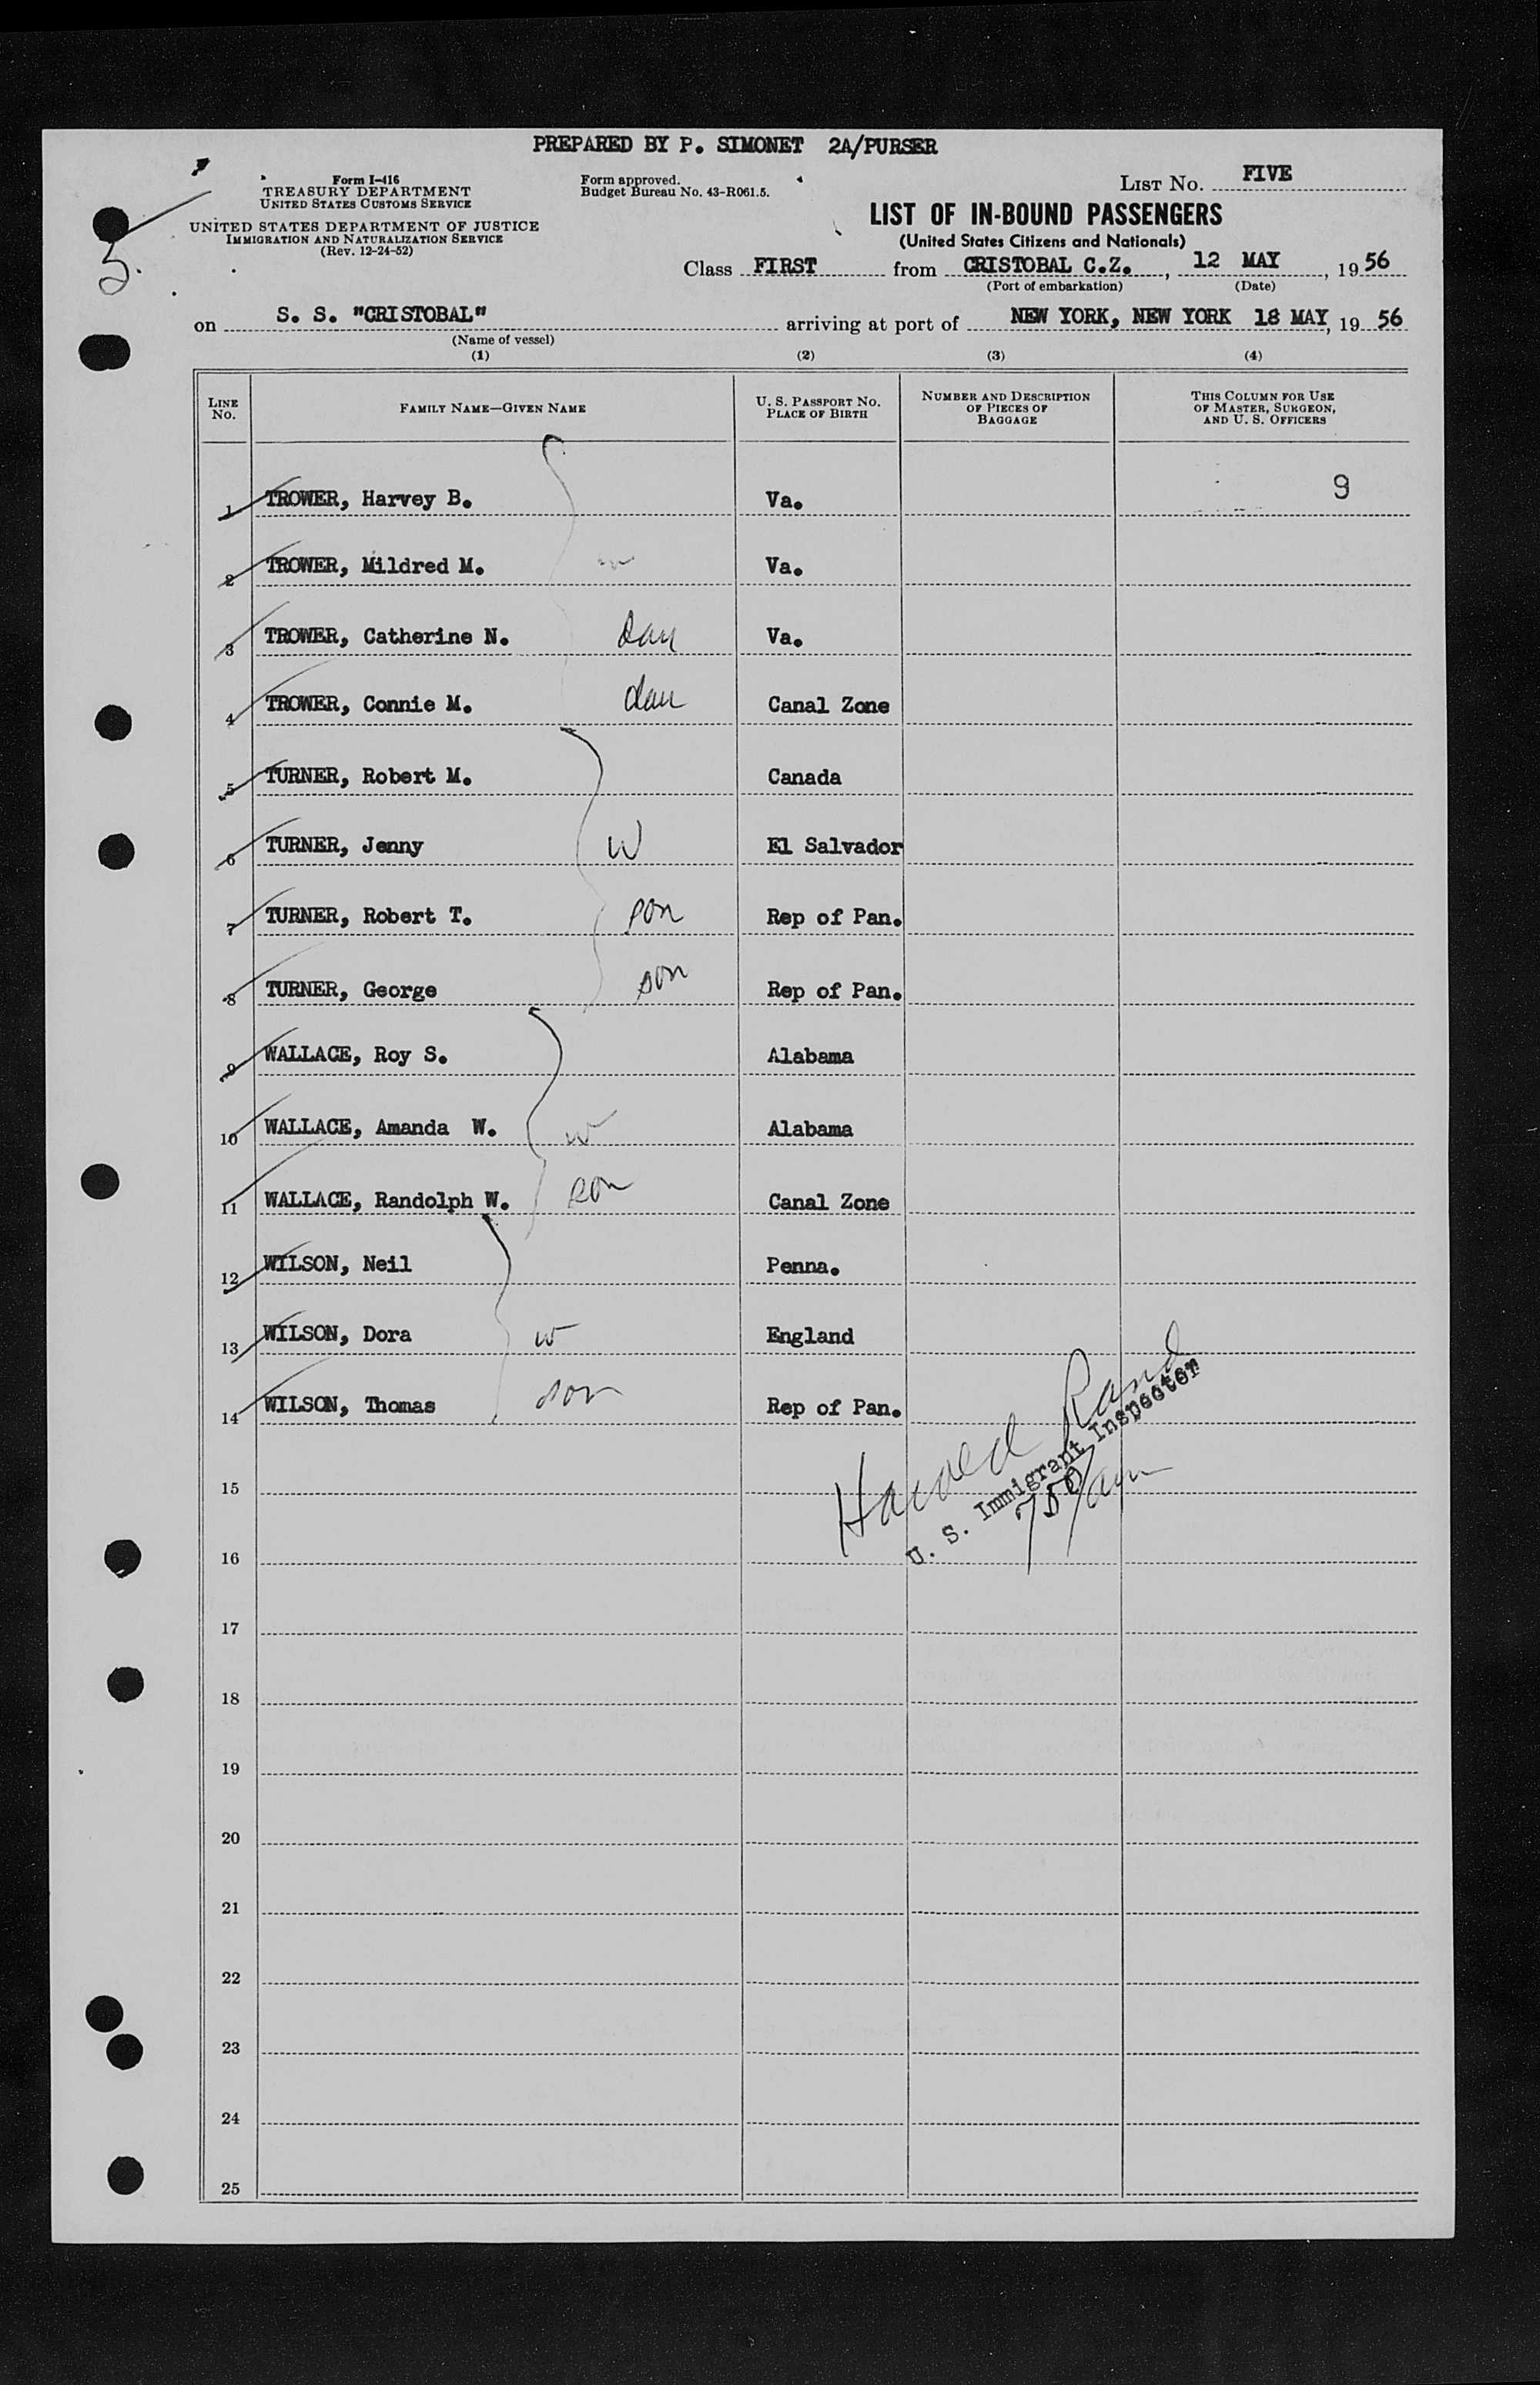 PREPARED BY P. SIMONET 2A/PURSER
Form I-416
TREASURY DEPARTMENT
UNITED STATES CUSTOMS SERVICE
UNITED STATES DEPARTMENT OF JUSTICE
IMMIGRATION AND NATURALIZATION SERVICE
(Rev. 12-24-52)
Form approved.
Budget Bureau No. 43-R061.5.
LIST No. FIVE
5.
LIST OF IN-BOUND PASSENGERS
(United States Citizens and Nationals)
Class FIRST from CRISTOBAL C.Z., 12 MAY, 1956
(Port of embarkation) (Date)
on S. S. "CRISTOBAL" arriving at port of NEW YORK, NEW YORK 18 MAY, 1956
(Name of vessel)
(1) (2) (3) (4)
LINE No. FAMILY NAME—GIVEN NAME U. S. PASSPORT NO. PLACE OF BIRTH NUMBER AND DESCRIPTION OF PIECES OF BAGGAGE THIS COLUMN FOR USE OF MASTER, SURGEON, AND U. S. OFFICERS
1 TROWER, Harvey B. Va. 9
2 TROWER, Mildred M. w Va.
3 TROWER, Catherine N. dau Va.
4 TROWER, Connie M. dau Canal Zone
5 TURNER, Robert M. Canada
6 TURNER, Jenny W El Salvador
7 TURNER, Robert T. son Rep of Pan.
8 TURNER, George son Rep of Pan.
9 WALLACE, Roy S. Alabama
10 WALLACE, Amanda W. w Alabama
11 WALLACE, Randolph W. son Canal Zone
12 WILSON, Neil Penna.
13 WILSON, Dora w England
14 WILSON, Thomas son Rep of Pan.
Harold Rand
U. S. Immigrant Inspector
750/am
15
16
17
18
19
20
21
22
23
24
25